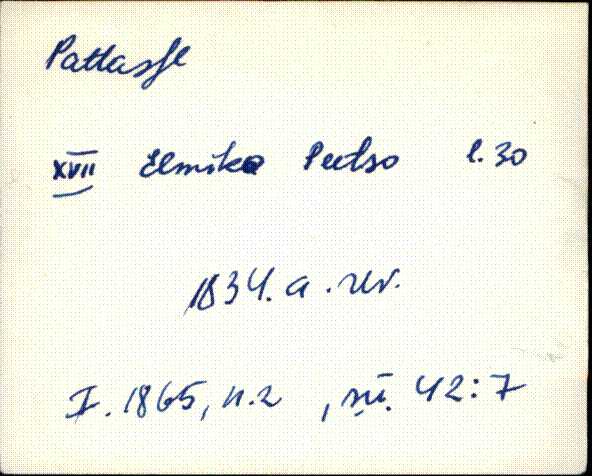 Patlasfe
XVII Elmiko Peetso l. 30
1834. a. rev.
I. 1865, n. 2, sü. 42:7